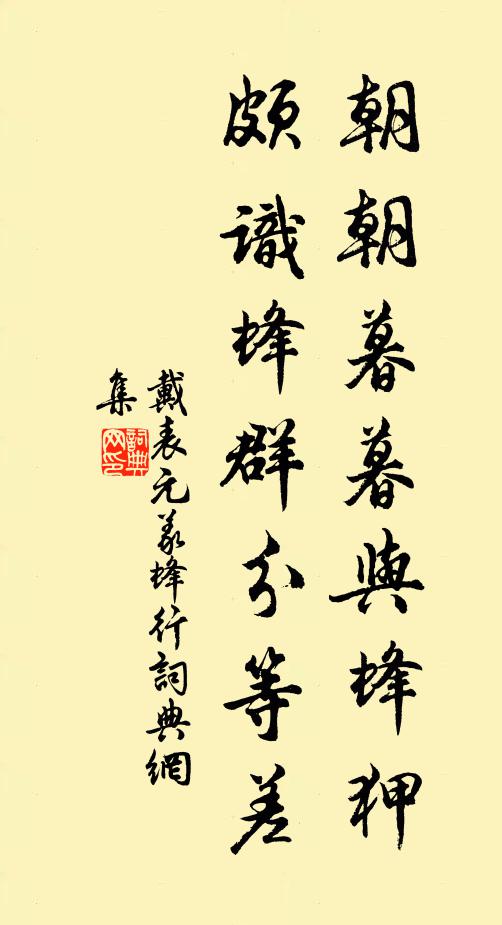 朝朝暮暮與蜂狎
頗識蜂群分等差
戴表元義蜂行詞典網
集
詞典
网印